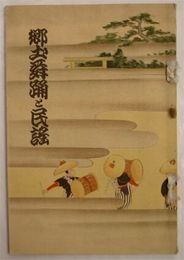 郷土舞踊と民謡